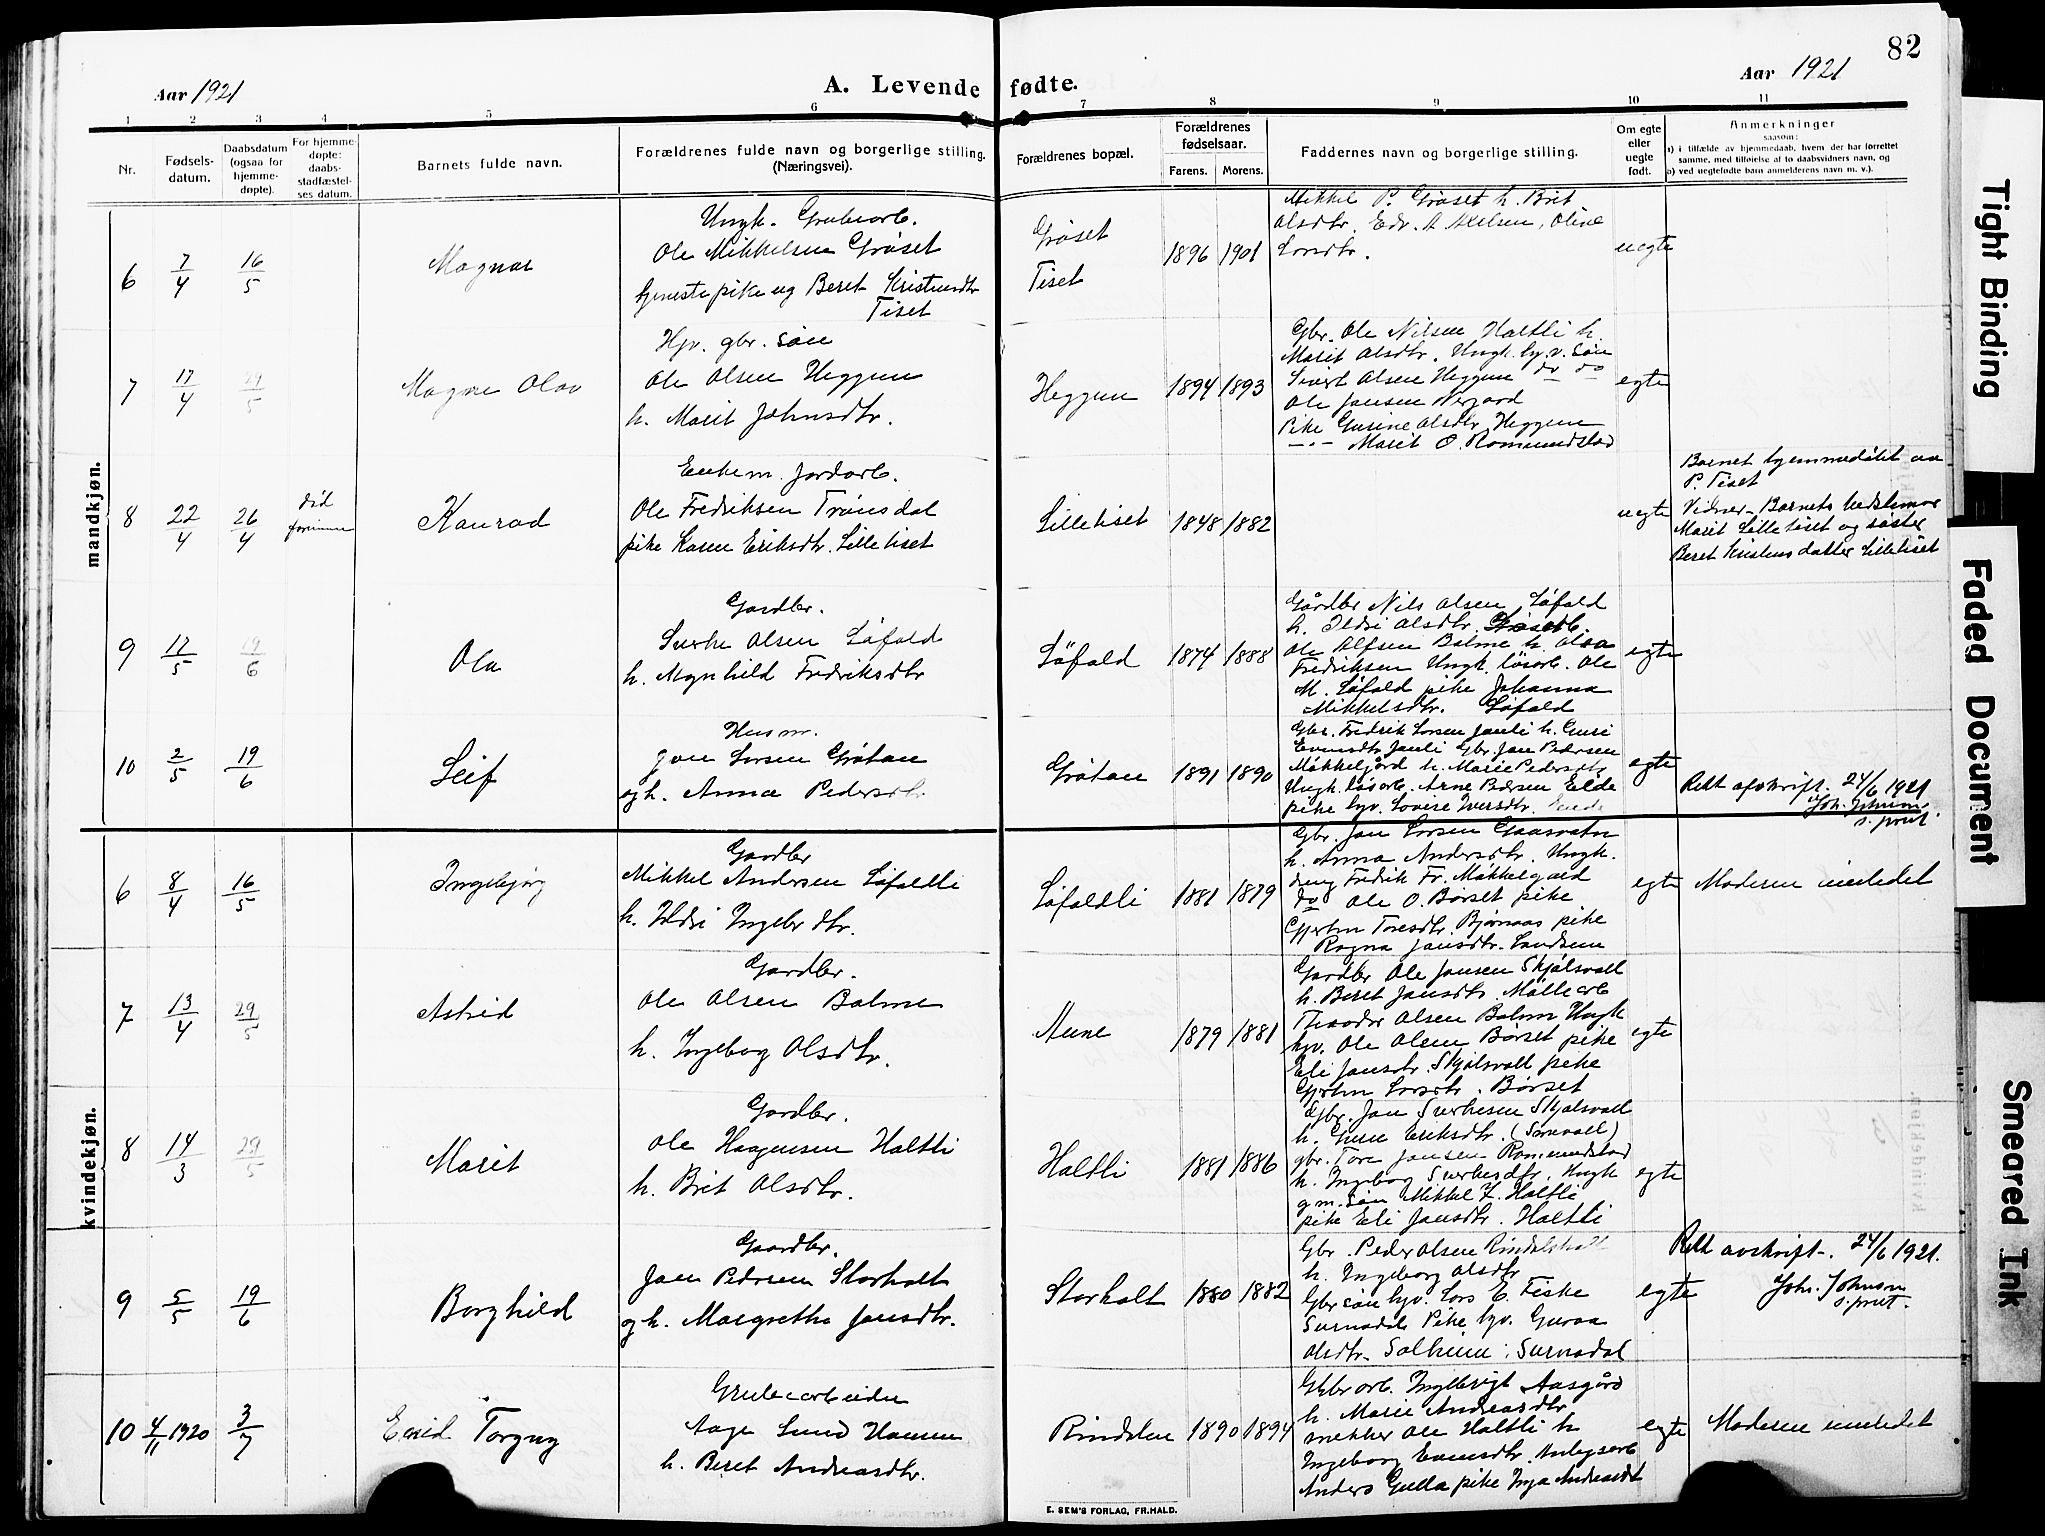 82
Aar 1921
A. Levende fødte.
Aar 1921
1 2 3 4 5 6 7 8 9 10 11
Nr.
Fødsels-
datum.
Daabsdatum
(ogsaa for
hjemme-
døpte).
For hjemme-
døpte:
daabs-
stadfæstel-
ses datum.
Barnets fulde navn.
Forældrenes fulde navn og borgerlige stilling.
(Næringsvei).
Forældrenes bopæl.
Forældrenes
fødselsaar.
Farens. Morens.
Faddernes navn og borgerlige stilling.
Om egte
eller
uegte
født.
Anmerkninger
saasom:
a) i tilfælde av hjemmedaab, hvem der har forrettet
samme, med tilføielse af to daabsvidners navn, og
b) ved uegtefødte barn anmelderens navn m. v.).
mandkjøn.
6 7/4 16/5
Magnar
Ungk. Grubearb.
Ole Mikkelsen Grøset
tjenestepike ug Beret Kristensdtr
Tiset
Grøset
Tiset
1896 1901
Mikkel P. Grøset h. Brit
Olsdtr. Edv. A. Axelsen, Oline
Larsdtr.
uegte
7 17/4 29/5
Magne Olav
Hjv. gbr. søn
Ole Olsen Heggem
h. Marit Johnsdtr.
Heggem
1894 1893
Gbr. Ole Nilsen Haltli h.
Marit Olsdtr. Ungk. hj.v. søn
Sivert Olsen Heggem do do
Ole Jansen Nergard
Pike Gurine Olsdtr Heggem
— " — Marit O. Romundstad
egte
8 22/4 26/4
død
forinnen
Konrad
Enkem. Jordarb.
Ole Fredriksen Trønsdal
pike Karen Eriksdtr. Lilletiset
Lilletiset
1848 1882
uegte
Barnet hjemmedøbt av
P. Tiset
Vidner - Barnets bedstemor
Marit Lilletiset og søster
Beret Kristensdatter Lilletiset
9 17/5 19/6
Ola
Gardbr.
Sverke Olsen Løfald
h. Magnhild Fredriksdtr
Løfald
1874 1888
Gårdbr Nils Olsen Løfald
h. Ildri Olsdtr.
Ole Olsen Bolme h. Olava
Fredriksen Ungk. løsarb. Ole
M. Løfald pike Johanna
Mikkelsdtr. Løfald
egte
10 2/5 19/6
Leif
Husm.
Jon Larsen Grøtan
og h. Anna Pedersdtr
Grøtan
1891 1890
Gbr. Fredrik Larsen Janli h. Guri
Evensdtr Janli Gbr. Jan Pedersen
Møkkelgård h. Marie Pedersdtr
Ungk. løsarb. Arne Elde
pike hjv. Lovise Iversdtr.
egte
Rett afskrift. 24/6 1921
Joh. Johnson
s. prest.
kvindekjøn.
6 8/4 16/5
Ingebjørg
Gardbr
Mikkel Andersen Løfaldli
h. Ildri Ingebr dtr.
Løfaldli
1881 1879
Gbr. Jan Larsen Gaasvatn
h. Anna Andersdtr. Ungk.
dreng Fredrik Fr. Møkkelgård
do Ole O. Børset pike
Gjertin Toresdtr. Bjørnaas pike
Ragna Jansdtr. Landsem
egte
Moderen innledet
7 13/4 29/5
Astrid
Gardbr.
Ole Olsen Bolme
h. Ingebog Olsdtr.
Aune
1879 1881
Gardbr Ole Jansen Skjølsvoll
h. Beret Jansdtr. Møllearb
Theodor Olsen Bolme Ungk
hjv. Ole Olsen Børset pike
Eli Jansdtr. Skjølsvoll pike
Gjertin Larsdtr. Børset
egte
8 14/3 29/5
Marit
Gardbr.
Ole Haagensen Haltli
h. Brit Olsdtr.
Haltli
1881 1886
Gbr. Jan Sverkesen Skjølsvoll
h. Guri Eriksdtr. (Sørevoll)
gbr. Tore Jansen Romundstad
h. Ingebog Sverkesdtr. Ungk
gm. søn Mikkel H. Haltli
pike Eli Jansdtr. Haltli
egte
9 5/5 19/6
Borghild
Gaardbr.
Jan Pedersen Storholt
og h. Margrethe Jansdtr.
Storholt
1880 1882
Gbr. Peder Olsen Rindalsholt
h. Ingeborg Olsdtr
Gbr søn hjv. Lars E. Fiske
Surnadal Pike hjv. Guroa
Olsdtr. Solheim, Surnadal
egte
Rett avskrift. 24/6 1921.
Joh. Johnson
s. prest.
10 4/11 1920 3/7
Enid Torgny
Grubearbeider
Aage Lund Hansen
h. Beret Andreasdtr.
Rindalen
1890 1894
arb. Ingebrigt Aasgård
h. Marie Andreasdtr.
snekker Ole Haltli h
Ingeborg Evensdtr. Anlegsarb
Anders Gulla pike Inga Andreasdt
egte
Moderen innledet
E. SEM'S FORLAG, FR.HALD.
Tight Binding
Faded Document
Smeared Ink